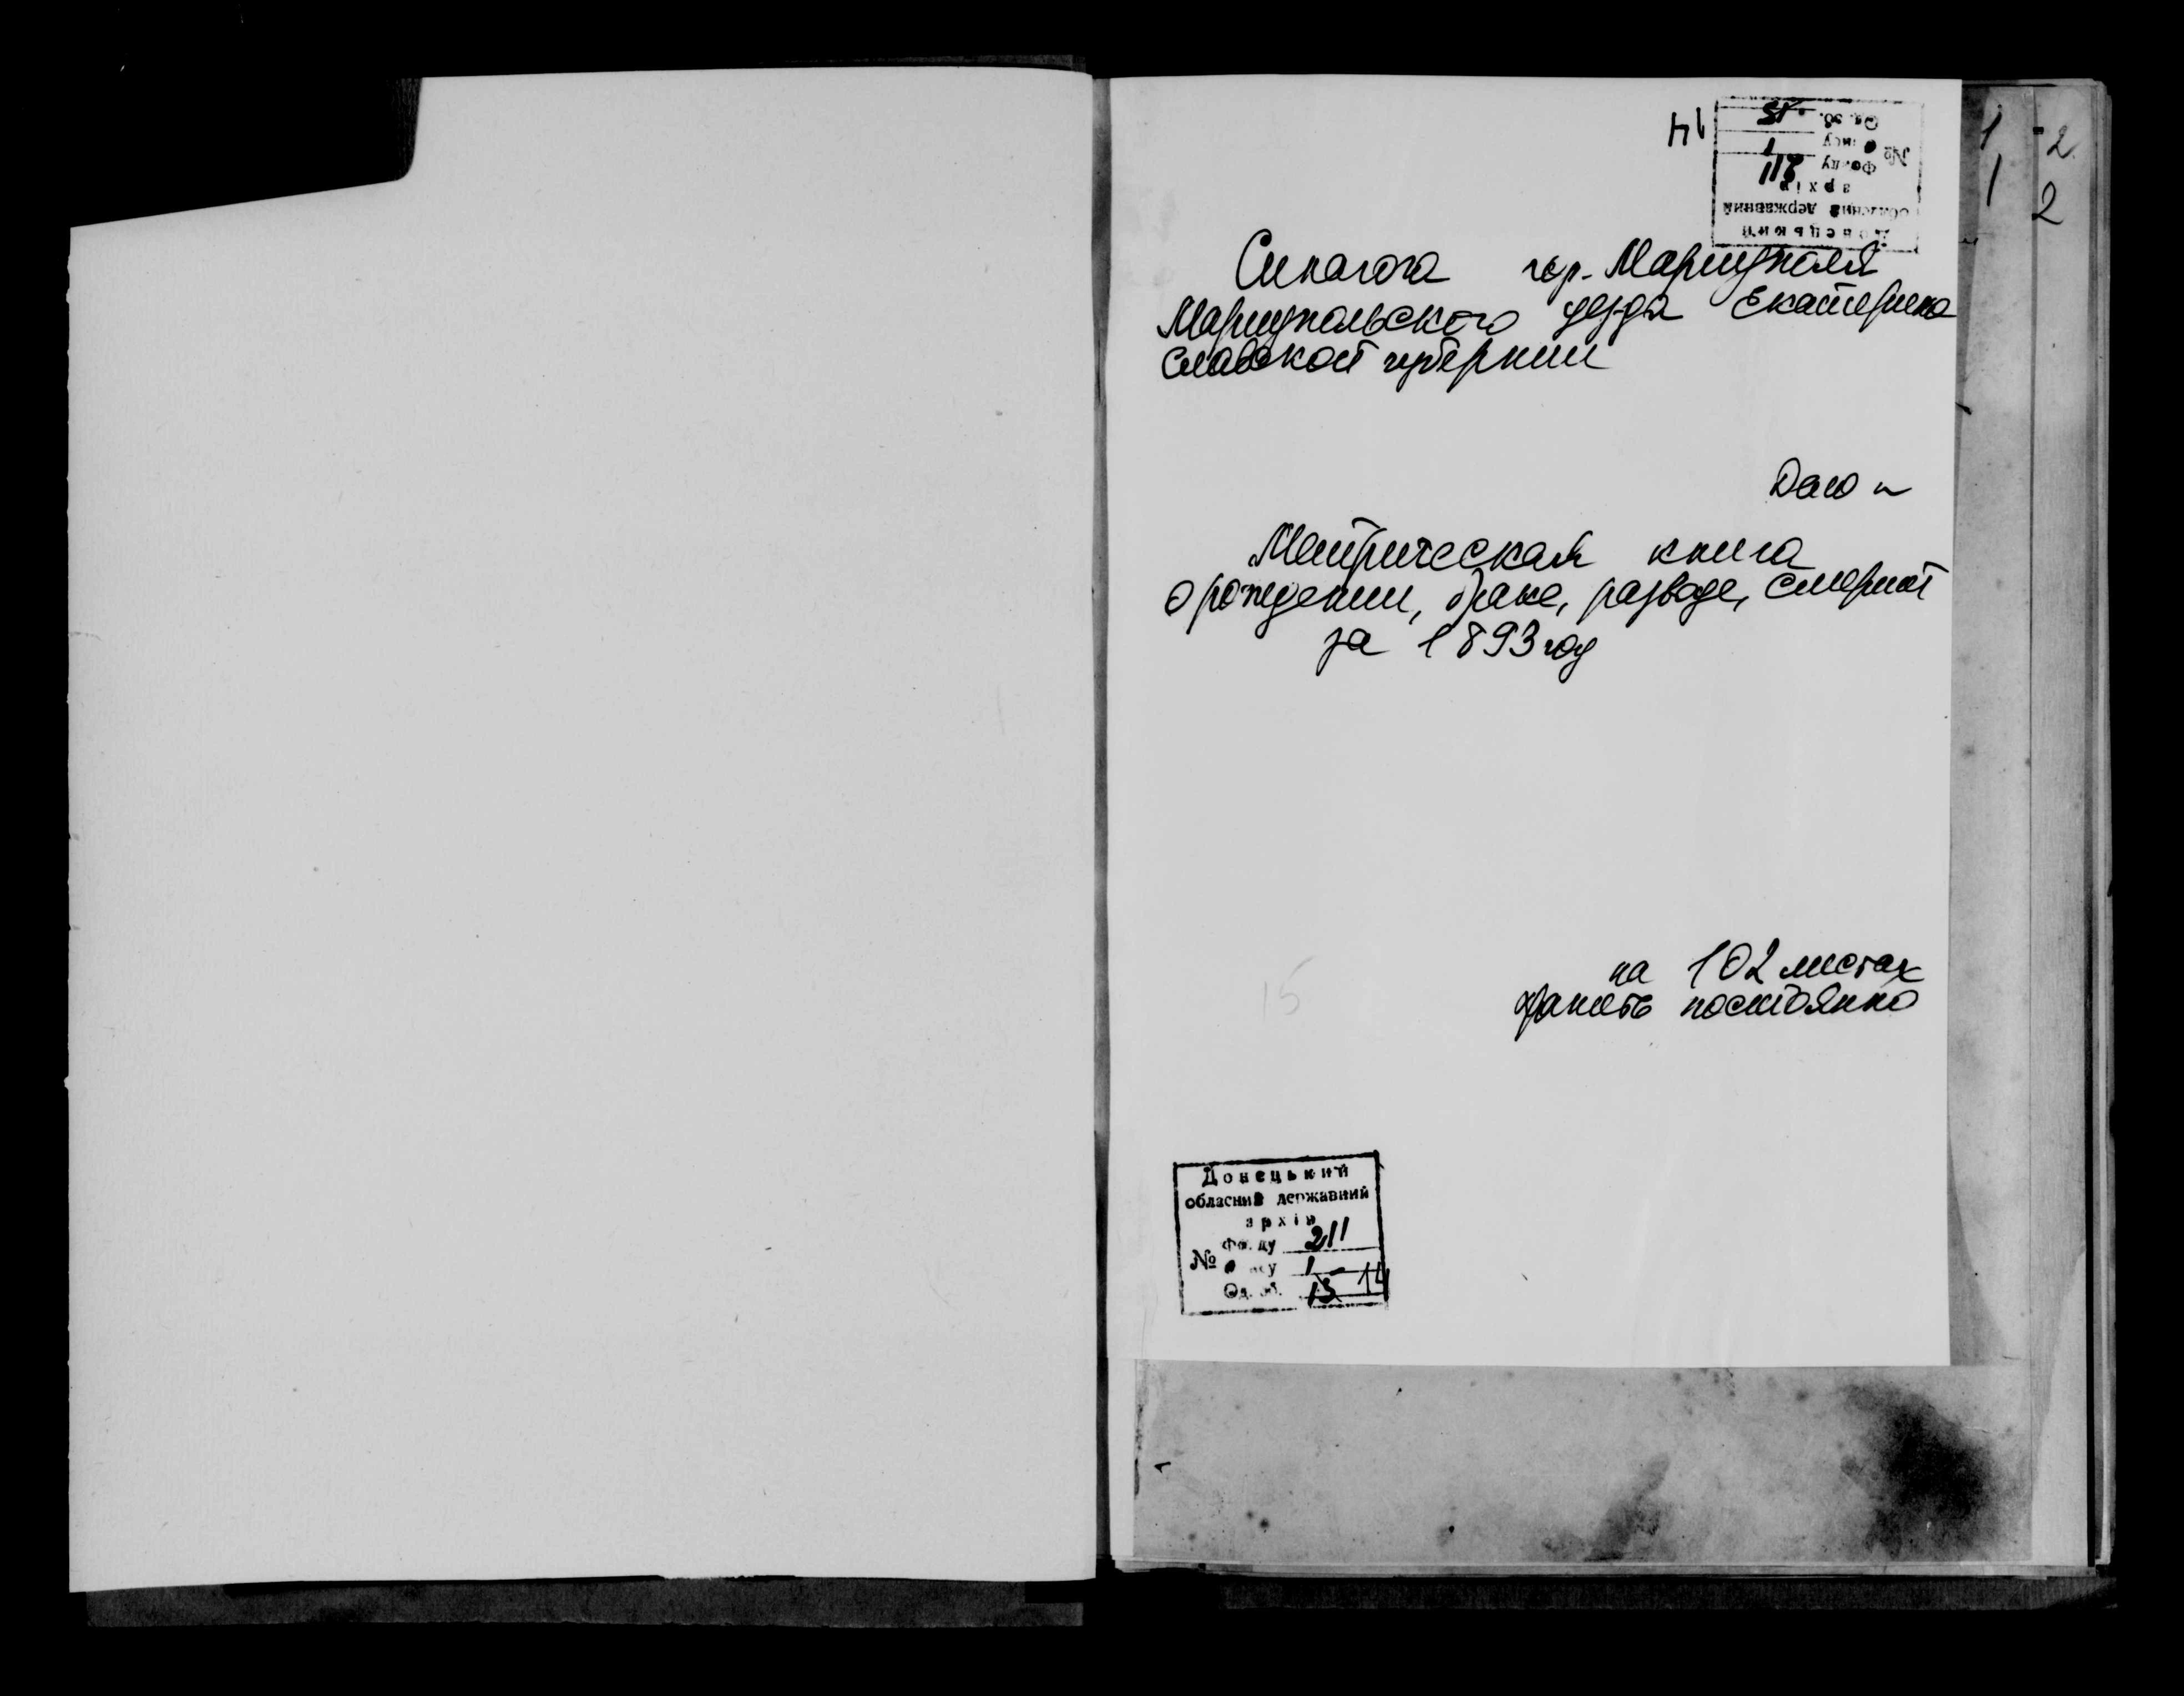 14
Донецький
обласний державний
архів
№ Фонду 211
опису 1
Од. зб. 15
1 - 2
1 2
Синагога гор. Мариуполя
Мариупольского уезда Екатерино
славской губернии
Дело №
Метрическая книга
о рождении, браке, разводе, смерти
за 1893 год
на 102 листах
хранить постоянно
15
Донецький
обласний державний
архів
Фонду 211
№ опису 1
Од. зб. 15 14